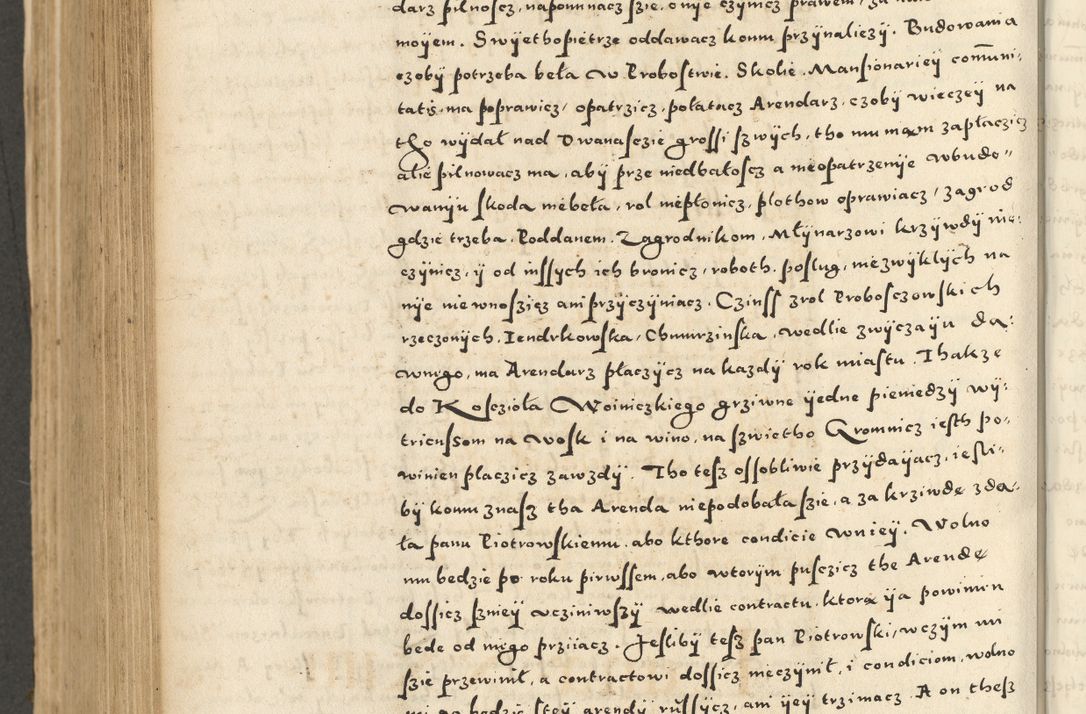 darz pilnoscz, napominacz szie, o nye czynicz prawem, za
moyem. Swyethopietrze oddawacz komu przynaliezy. Budowania
czoby potrzeba beła w Probostwie. Skolie. Mansionariey com̄uni-
tatis ma poprawicz, opatrzicz, połatacz Arendarz, czoby wieczey na
tho wydał nad Dwanasczie grossi szwych, tho mu mam zapłaczicz
alie pilnowacz ma, aby prze niedbałoscz a nieopatrzenye wbudo-
wanyu skoda niebeła, rol niepłonicz, plothow oprawiacz, zagrod
gdzie trzeba. Poddanem. Zagrodnikom. Młynarzowi krzywdy nie-
czynicz, y od inssych ich bronicz, roboth, poslug, niezwyklych na
nye niewnoszicz ani przyczyniacz. Czinss zrol Probosczowskich
rzeczonych, Iendrkowska, Chmurzinska, wedlie zwyczayu da-
wnego, ma Arendarz płaczycz na kazdy rok miastu. Thakze
do Kosczioła Woiniczkiego grziwne yedne pieniedzy wy-
tricussom na wosk i na wino, na szwietho Gromnicz iesth po-
winien placzicz zawzdy. Tho tesz ossobliwie przydayacz, iesli-
by komu znasz tha Arenda niepodobała szie, a za krziwde zda-
ła panu Piotrowskiemu, abo kthore condicie wniey. Wolno
mu bedzie po roku pirwssem, abo wtorym pusczicz the Arende
dossicz szniey vcziniwszy wedlie contractu, ktora ya powinien
bede od niego przyiacz. Jesliby tesz pan Piotrowski, wczym mi
szie przewinił, a contractowi dossicz nieczynił, i condiciom, wolno
mi go bedzie stey arendy russycz, ani yey trzimacz. A on thesz